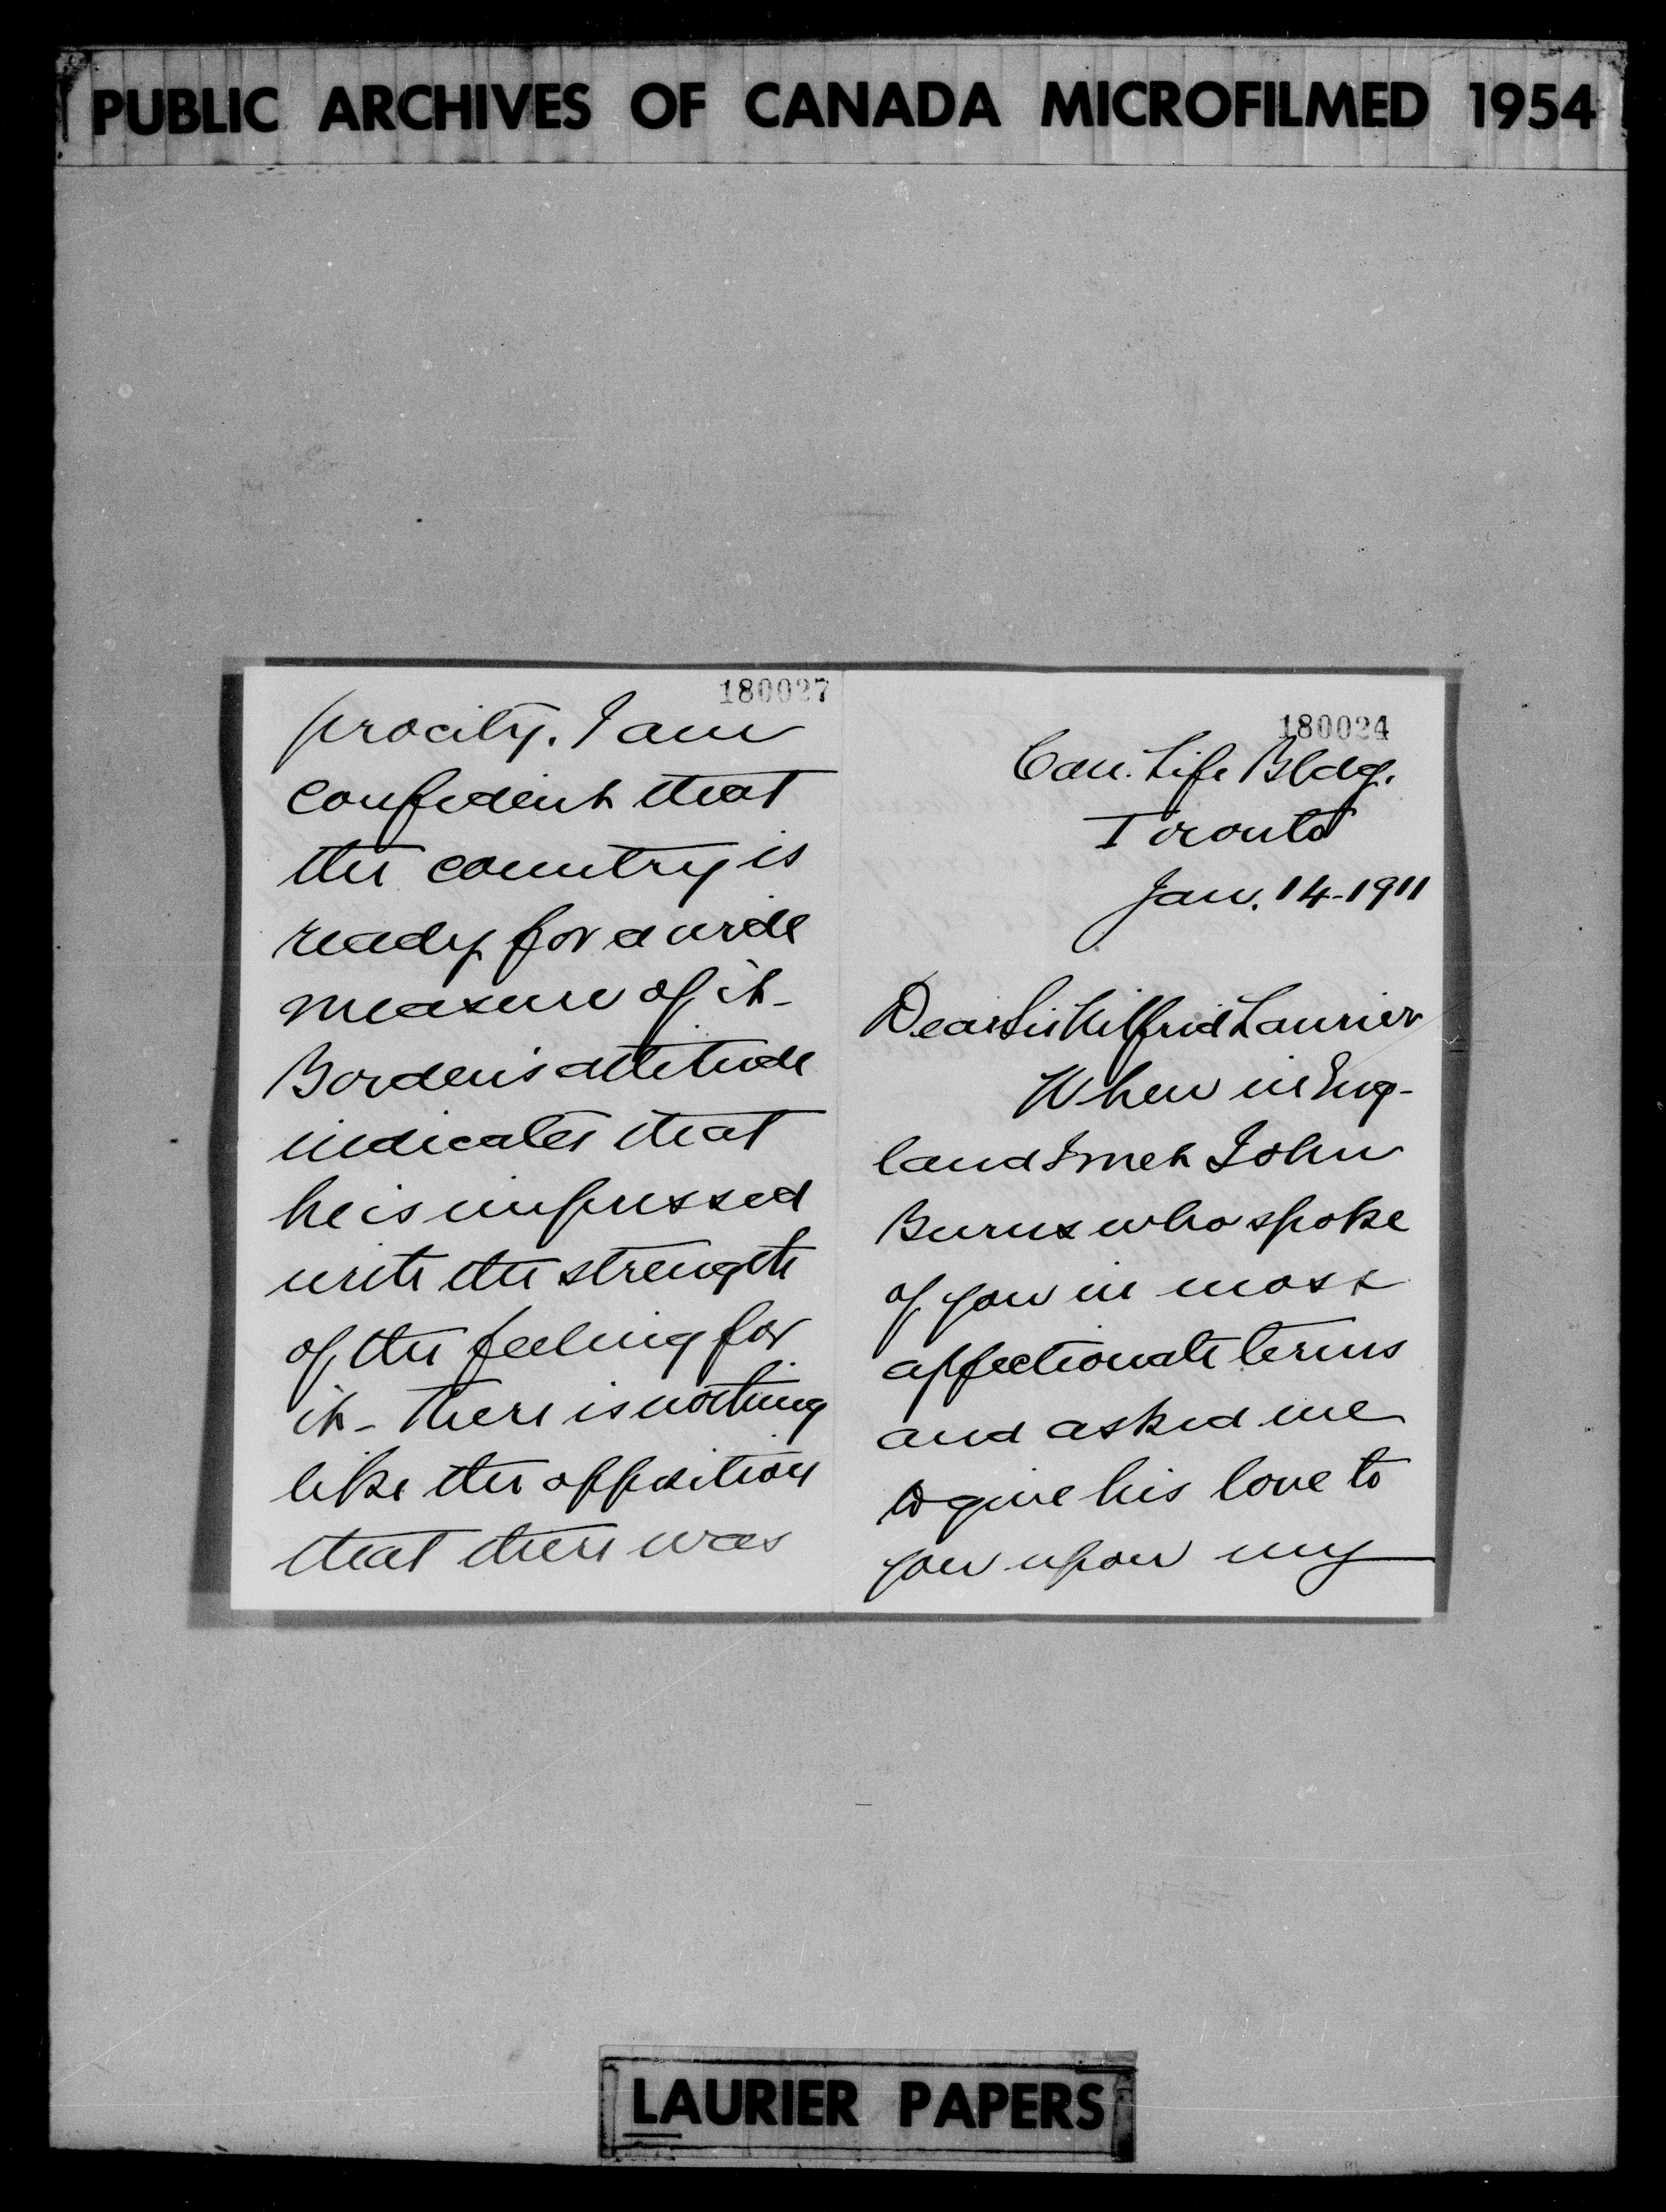 PUBLIC ARCHIVES OF CANADA MICROFILMED 1954
180027
procity. I am
confident that
the country is
ready for a wide
measure of it –
Borden's attitude
indicates that
he is impressed
with the strength
of the feeling for
it – There is nothing
like the opposition
that there was
180024
Can. Life Bldg.
Toronto
Jan. 14-1911
Dear Sir Wilfrid Laurier
When in Eng-
land I met John
Burns who spoke
of you in most
affectionate terms
and asked me
to give his love to
you upon my
LAURIER PAPERS